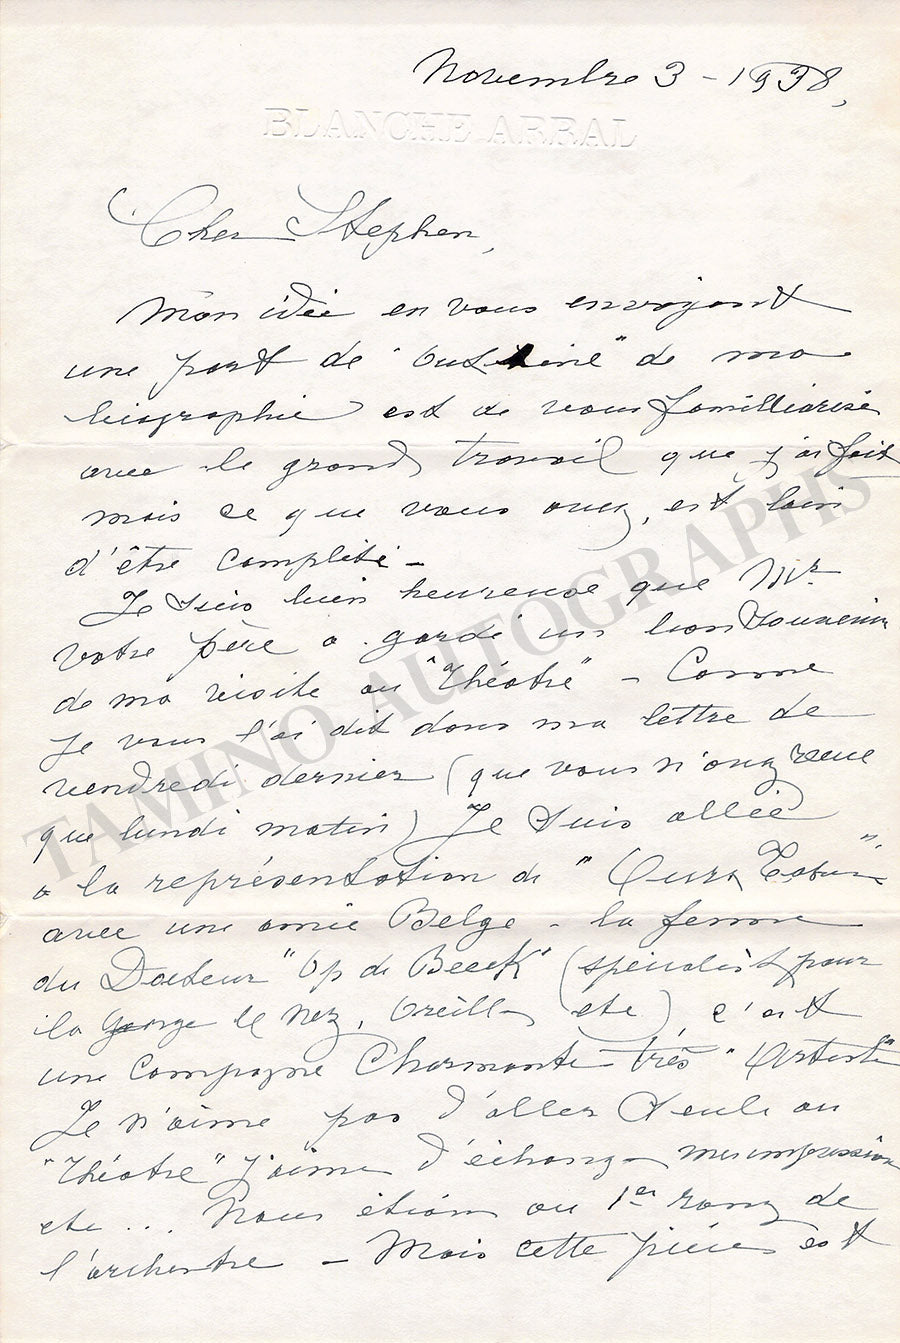 Novembre 3 - 1938,
BLANCHE ARRAL
Cher Stephen,
Mon idée en vous envoyant
une part de "outline" de ma
biographie est de vous familliarisé
avec le grand travail que j'ai fait
mais ce que vous avez, est loin
d'être complété -
Je suis bien heureuse que Mr
votre père a gardé un bon souvenir
de ma visite au "Théâtre" - Comme
je vous l'ai dit dans ma lettre de
vendredi dernier (que vous n'avez reçue
que lundi matin) Je suis allée
a la représentation de "Ours Town",
avec une amie Belge - la femme
du Docteur "Op de Beeck" (spécialist pour
la gorge le nez, oreille etc) c'est
une compagne charmante très "Artist"
Je n'aime pas d'aller seule au
"Théâtre" j'aime d'échanger mes impression
etc... Nous étions au 1er rang de
l'orchestre - Mais cette pièce est
TAMINO AUTOGRAPHS